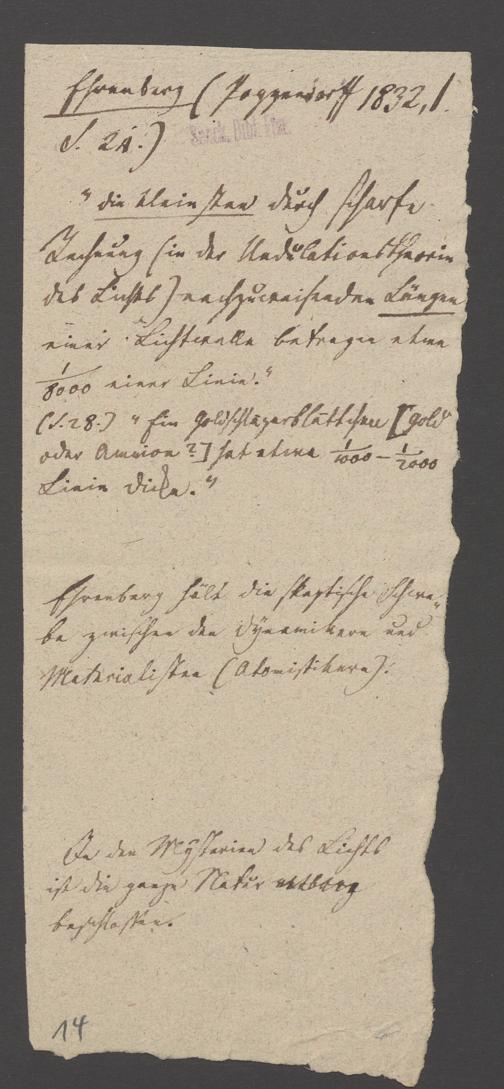 Ehrenberg (Poggendorff 1832, 1.
S. 21.)
Senck. Bibl. Ffm.
"die kleinsten durch scharfe
Rechnung (in der Undulationstheorie
des Lichts) nachzuweisenden Längen
einer Lichtwelle betragen etwa
1/8000 einer Linie."
(S. 28.) "Ein Goldschlägerblättchen [Gold
oder Amnion?] hat etwa 1/1000 – 1/2000
Linie Dicke."
Ehrenberg hält die skeptische Schwe-
be zwischen den Dynamikern und
Materialisten (Atomistikern).
In den Mysterien des Lichts
ist die ganze Natur
beschlossen.
14